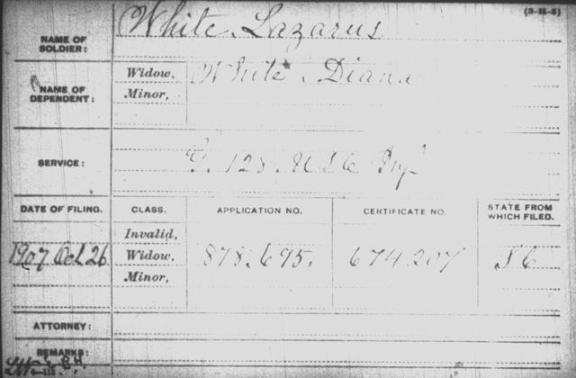 (3-11-3)
NAME OF SOLDIER: White, Lazarus
NAME OF DEPENDENT: Widow, White, Diana
Minor,
SERVICE: G. 128. U S C Inf
DATE OF FILING. CLASS. APPLICATION NO. CERTIFICATE NO. STATE FROM WHICH FILED.
Invalid,
1907 Oct 26 Widow, 878.695. 674.207 S C
Minor,
ATTORNEY:
REMARKS: